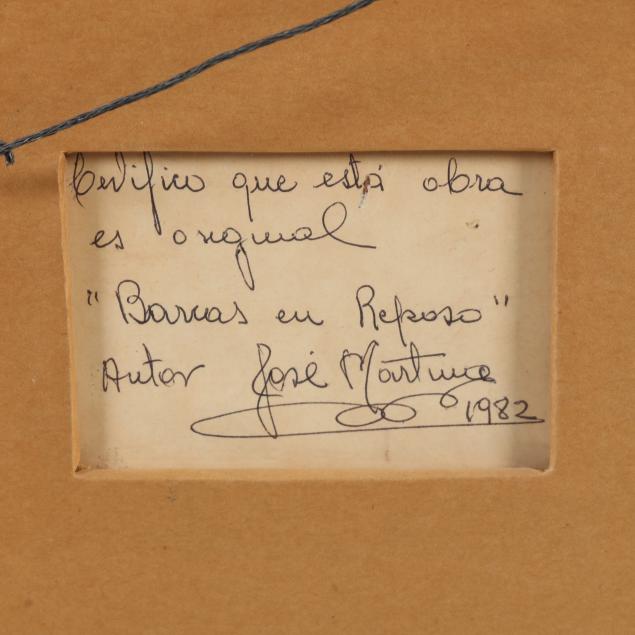 Certifico que está obra
es original
"Barcas en Reposo"
Autor José Martinez
1982